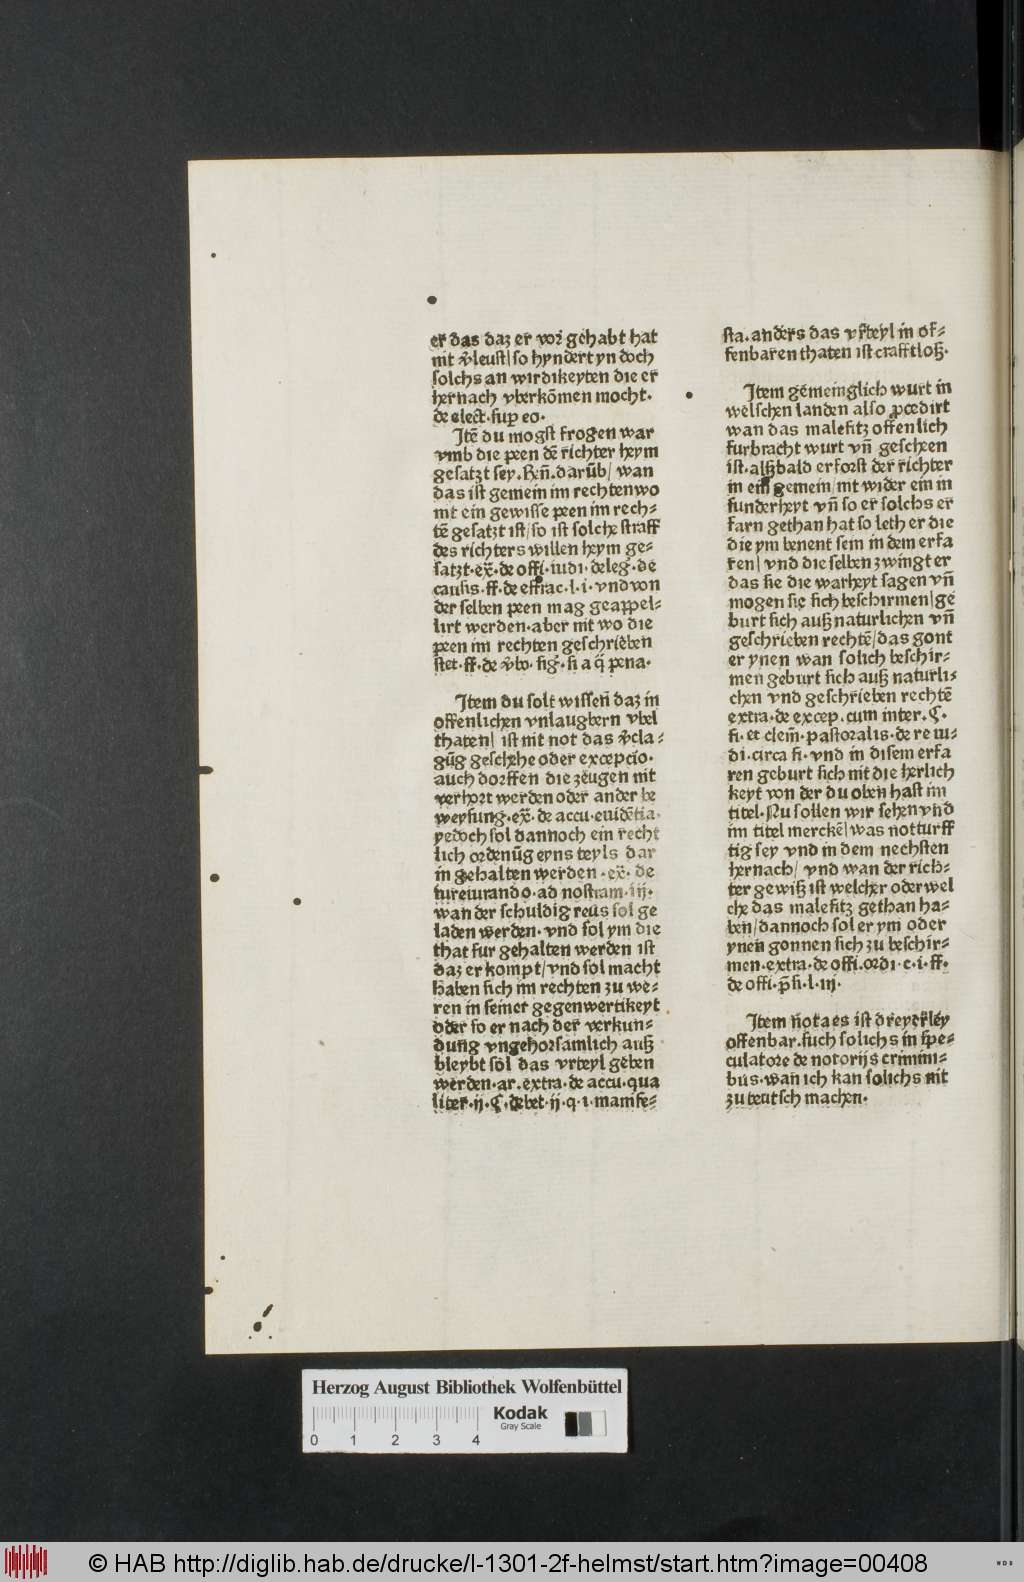 er das daz er vor gehabt hat
nit v̄leust/ so hyndert yn doch
solchs an wirdikeyten die er
hernach vberkōmen mocht.
de elect. sup eo.
Itē du mogst frogen war
vmb die peen dē richter heym
gesatzt sey. Rn̄. darūb/ wan
das ist gemein im rechten wo
nit ein gewisse peen im rech-
tē gesatzt ist/ so ist solche straff
des richters willen heym ge-
satzt. ex̄. de offi. iudi. deleg. de
causis. ff. de effrac. l. i. vnd von
der selben peen mag geappel-
lirt werden. aber nit wo die
peen im rechten geschrieben
stet. ff. de v̄bo. sig. si a q̄ pena.
Item du solt wissen̄ daz in
offenlichen vnlaugbern vbel
thaten/ ist nit not das v̄cla-
gūg geschehe oder excepcio.
auch dorffen die zeugen nit
verhort werden oder ander be
weysung. ex̄. de accu. euidētia.
yedoch sol dannoch ein recht
lich ordenūg eyns teyls dar
in gehalten werden. ex̄. de
iureiurando. ad nostram. iij.
wan der schuldig reus sol ge
laden werden. vnd sol ym die
that fur gehalten werden ist
daz er kompt/ vnd sol macht
haben sich im rechten zu we-
ren in seiner gegenwertikeyt
oder so er nach der verkun-
dung vngehorsamlich auß
bleybt sol das vrteyl geben
werden. ar. extra. de accu. qua
liter. ij. C. debet. ij. q. i. manife-
sta. anders das vrteyl in of-
fenbaren thaten ist crafftloß.
Item gemeinglich wurt in
welschen landen also ꝓcedirt
wan das malefitz offenlich
furbracht wurt vn̄ gescheen
ist. alßbald erforst der richter
in ein gemein/ nit wider ein in
sunderheyt vn̄ so er solchs er
farn gethan hat so leth er die
die ym benent sein in dem erfa
ren/ vnd die selben zwingt er
das sie die warheyt sagen vn̄
mogen sie sich beschirmen/ ge
burt sich auß naturlichen vn̄
geschrieben rechtē/ das gont
er ynen wan solich beschir-
men geburt sich auß naturli-
chen vnd geschrieben rechtē
extra. de excep. cum inter. C.
fi. et clem̄. pastoralis. de re iu-
di. circa fi. vnd in disem erfa
ren geburt sich nit die herlich
keyt von der du oben hast im
titel. Nu sollen wir sehen vnd
im titel merckē/ was notturff
tig sey vnd in dem nechsten
hernach/ vnd wan der rich-
ter gewiß ist welcher oder wel
che das malefitz gethan ha-
ben/ dannoch sol er ym oder
ynen gonnen sich zu beschir-
men. extra. de offi. ordi. c. i. ff.
de offi. p̄si. l. iij.
Item nota es ist dreyerley
offenbar. such solichs in spe-
culatore de notorijs crimini-
bus. wan ich kan solichs nit
zu teutsch machen.
Herzog August Bibliothek Wolfenbüttel
Kodak
Gray Scale
0 1 2 3 4
© HAB http://diglib.hab.de/drucke/l-1301-2f-helmst/start.htm?image=00408
WDB